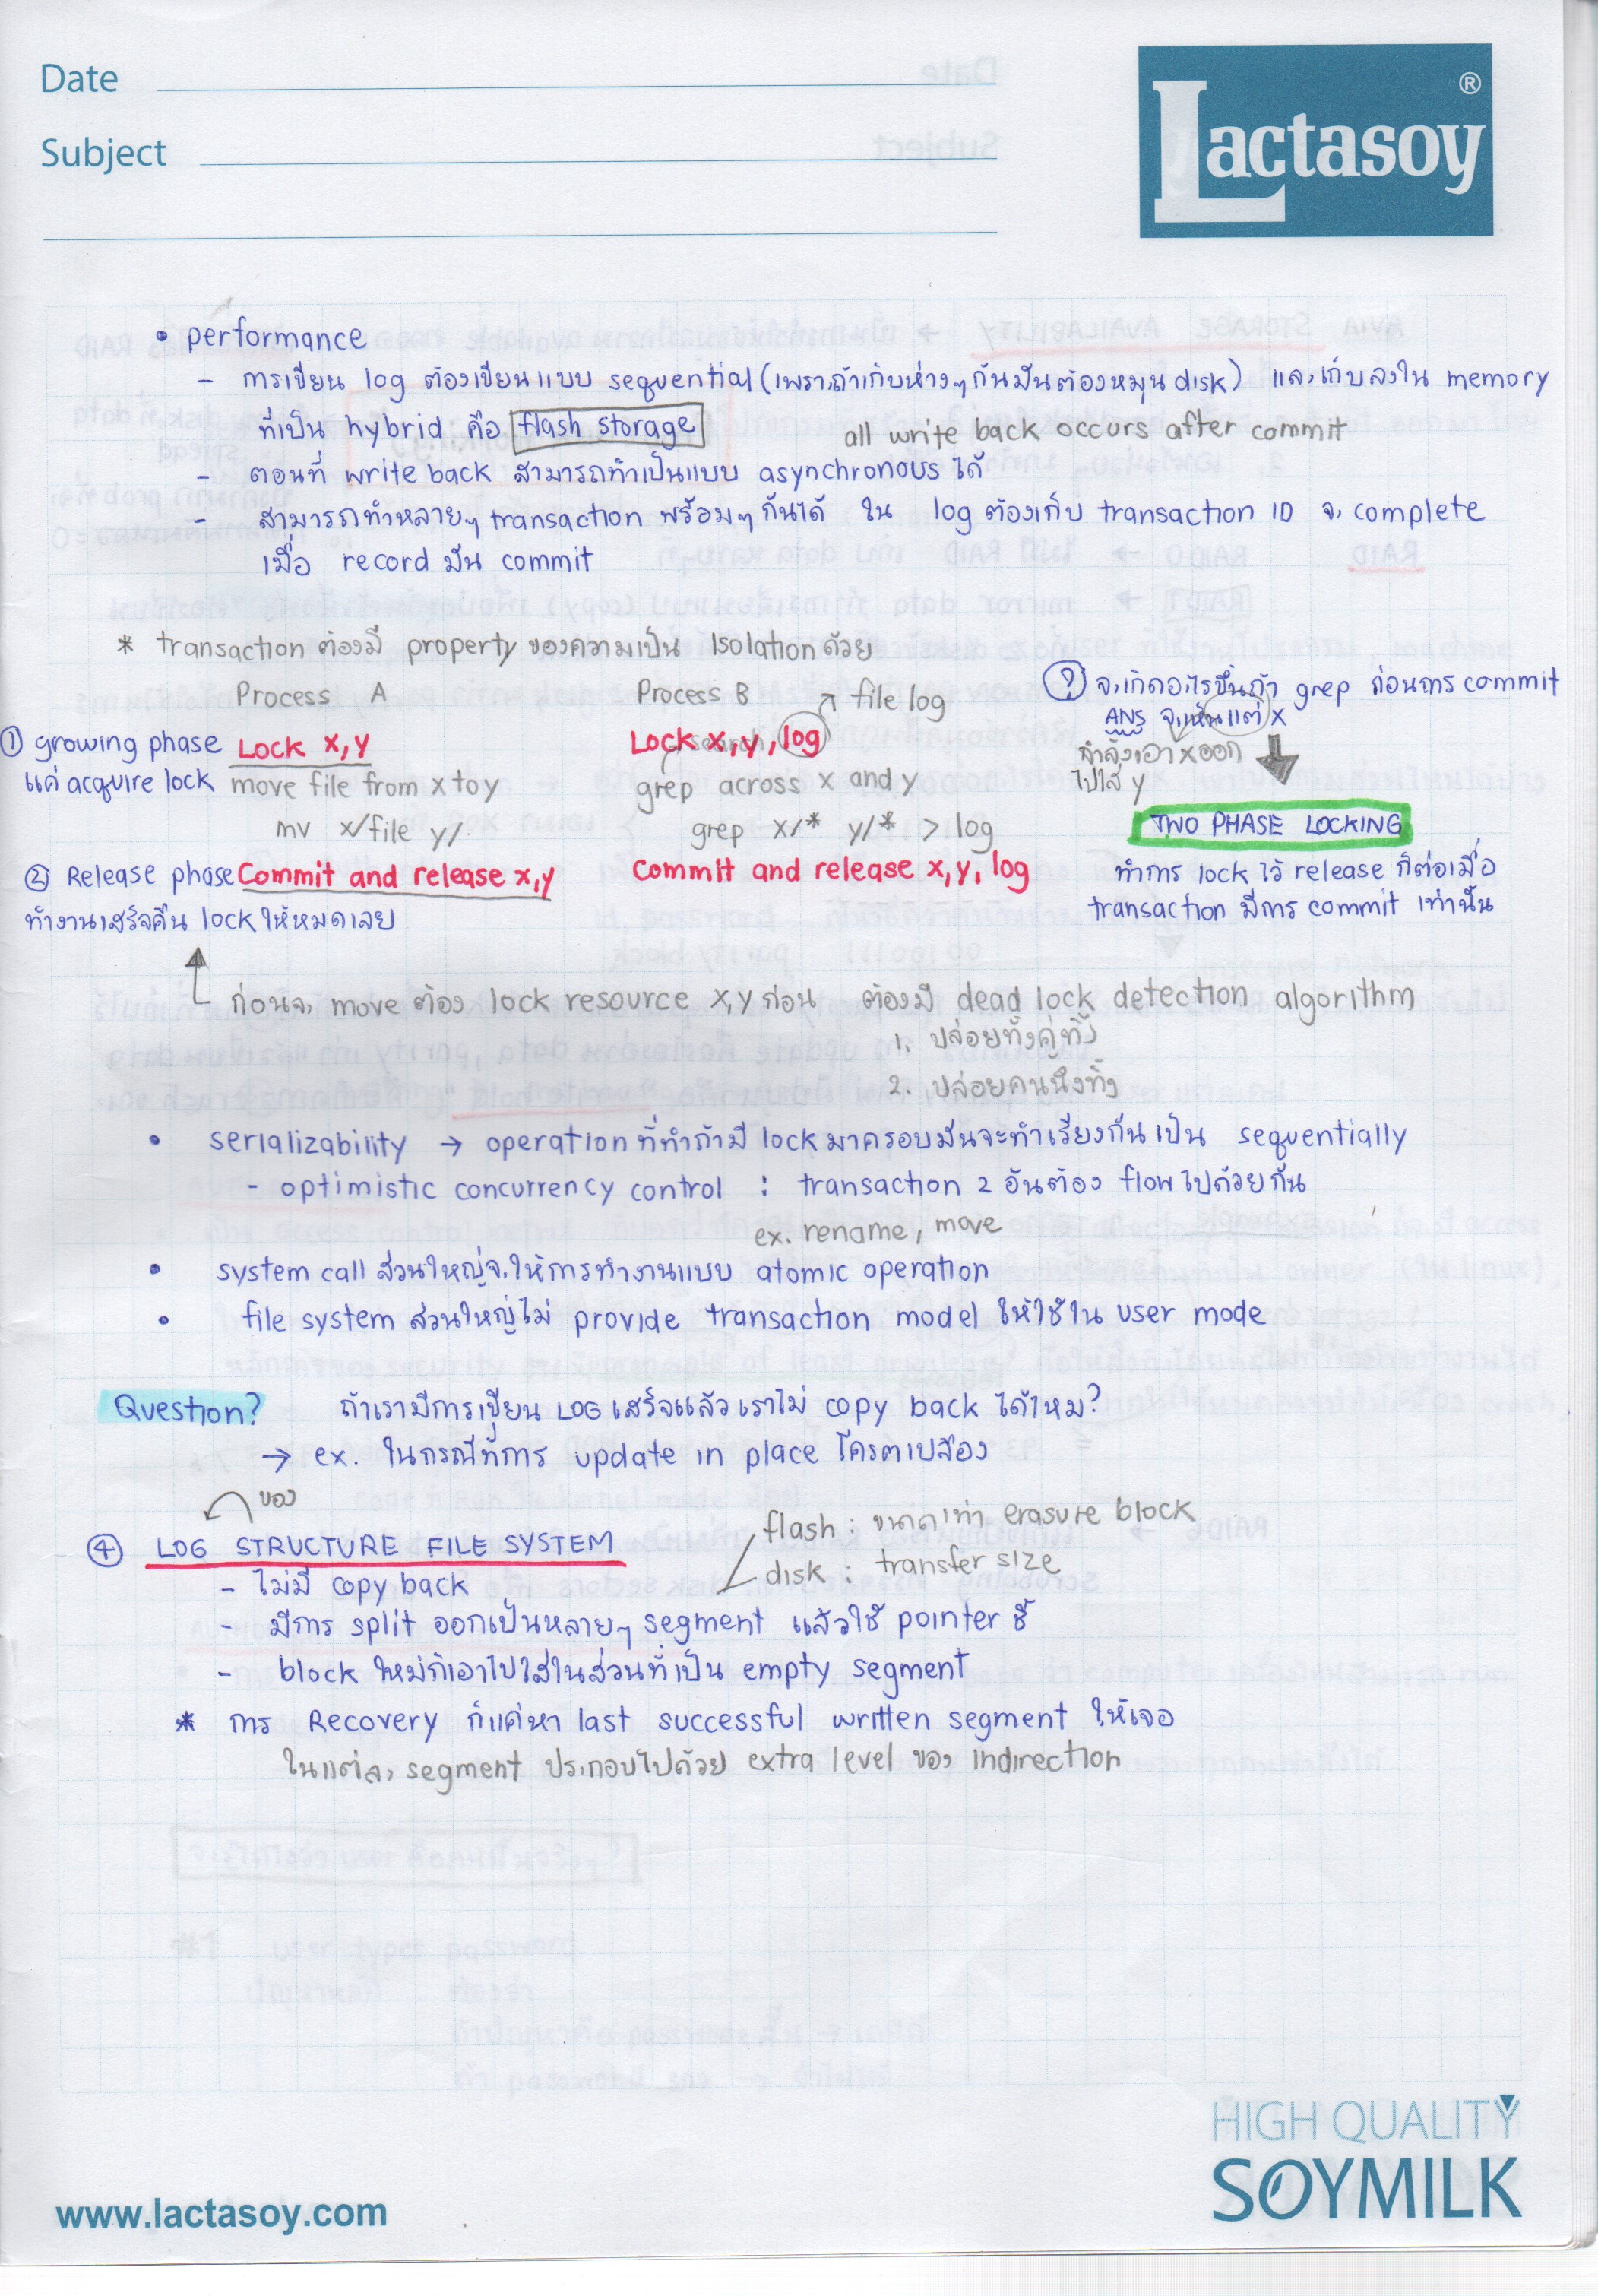 Date
Subject
Lactasoy ®
• performance
- การเขียน log ต้องเขียนแบบ sequential (เพราะถ้าเก็บห่างๆกันมันต้องหมุน disk) และเก็บลงใน memory
ที่เป็น hybrid คือ flash storage
all write back occurs after commit
- ตอนที่ write back สามารถทำเป็นแบบ asynchronous ได้
- สามารถทำหลายๆ transaction พร้อมๆกันได้ ใน log ต้องเก็บ transaction ID จะ complete
เมื่อ record มัน commit
* transaction ต้องมี property ของความเป็น Isolation ด้วย
Process A
Process B
file log
? จะเกิดอะไรขึ้นถ้า grep ก่อนการ commit
ANS จะเห็นแต่ x
กำลังเอา x ออก
ไปใส่ y
① growing phase Lock x,y
Lock x, y, log
แค่ acquire lock move file from x to y
search
grep across x and y
mv x/file y/
grep x/* y/* > log
TWO PHASE LOCKING
② Release phase Commit and release x,y
Commit and release x, y, log
ทำการ lock ไว้ release ก็ต่อเมื่อ
transaction มีการ commit เท่านั้น
ทำงานเสร็จคืน lock ให้หมดเลย
ก่อนจะ move ต้อง lock resource x,y ก่อน ต้องมี dead lock detection algorithm
1. ปล่อยทั้งคู่ทิ้ง
2. ปล่อยคนนึงทิ้ง
• serializability → operation ที่ทำถ้ามี lock มาครอบมันจะทำเรียงกันเป็น sequentially
- optimistic concurrency control : transaction 2 อันต้อง flow ไปด้วยกัน
ex. rename, move
• system call ส่วนใหญ่จะให้การทำงานแบบ atomic operation
• file system ส่วนใหญ่ไม่ provide transaction model ให้ใช้ใน user mode
Question? ถ้าเรามีการเขียน LOG เสร็จแล้วเราไม่ copy back ได้ไหม?
→ ex. ในกรณีที่การ update in place โครตเปลือง
ของ
④ LOG STRUCTURE FILE SYSTEM
flash : ขนาดเท่า erasure block
disk : transfer size
- ไม่มี copy back
- มีการ split ออกเป็นหลายๆ segment แล้วใช้ pointer ชี้
- block ใหม่ก็เอาไปใส่ในส่วนที่เป็น empty segment
* การ Recovery ก็แค่หา last successful written segment ให้เจอ
ในแต่ละ segment ประกอบไปด้วย extra level ของ indirection
HIGH QUALITY
SOYMILK
www.lactasoy.com